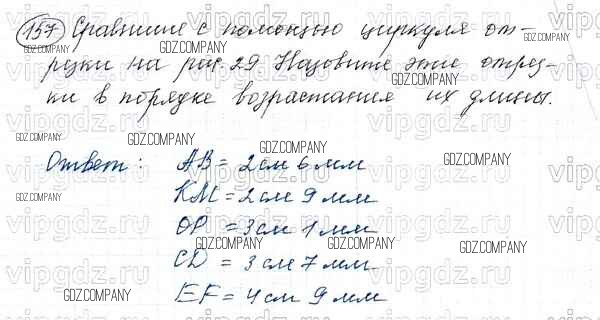 157 Сравните с помощью циркуля от-
резки на рис. 29 Назовите эти отрез-
ки в порядке возрастания их длины.
Ответ: AB = 2 см 6 мм
KM = 2 см 9 мм
OP = 3 см 1 мм
CD = 3 см 7 мм
EF = 4 см 9 мм